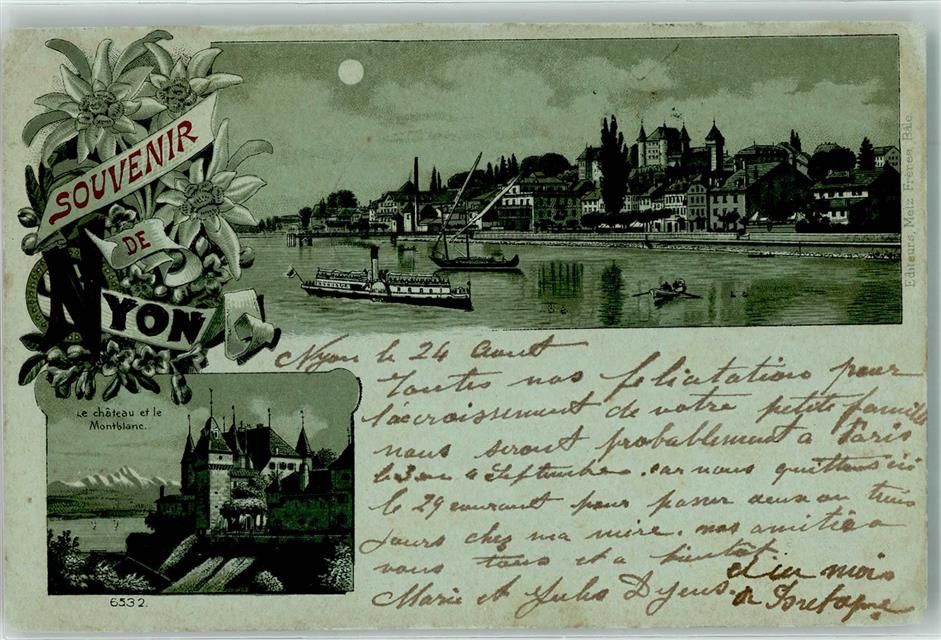 SOUVENIR
DE
NYON
Editeurs, Metz Frères, Bâle.
Le château et le
Montblanc.
6532.
Nyon le 24 Aout
Toutes nos felicitations pour
l'accroissement de votre petite famille
nous serons probablement a Paris
le 3 ou 4 Septembre. car nous quittons ici
le 29 courant pour passer deux ou trois
jours chez ma mère. nos amitiés
a vous tous et a bientôt
Marie et Jules
et un mois
Bretagne